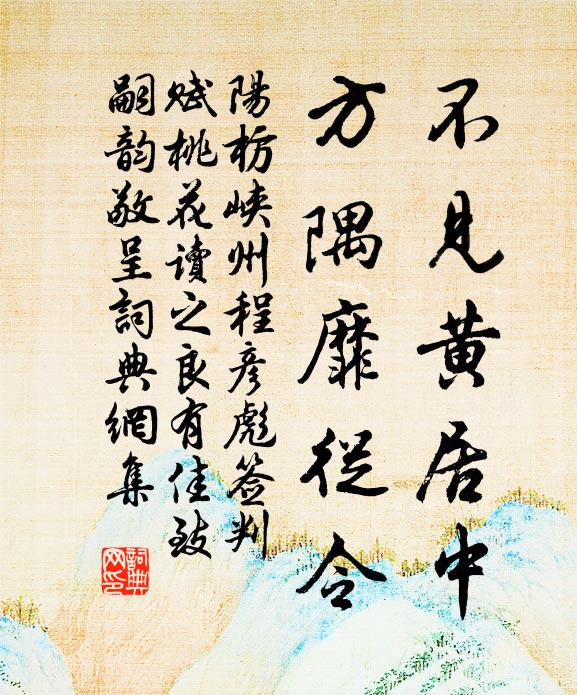 不見黄居中
方隅靡從令
陽枋峽州程彦彪簽判
赋桃花读之良有佳致
嗣韵敬呈詞典網集
詞典网印